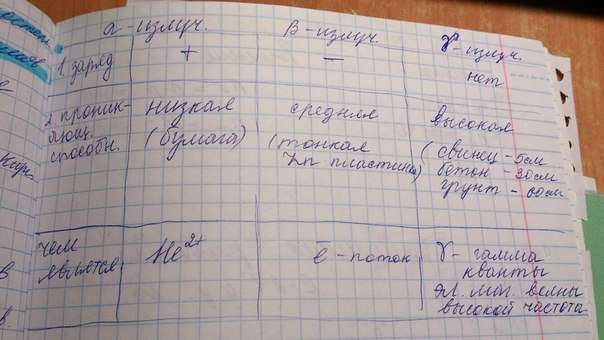 α-излуч. β-излуч. γ-излуч.
1. заряд + − нет
2 проник-
ающ.
способн.
низкая
(бумага)
средняя
(тонкая
Zn пластина)
высокая
(свинец - 5см
бетон - 30см
грунт - 60см
чем
является
He²⁺
ē - поток
γ - гамма
кванты
эл. маг. волны
высокой частота